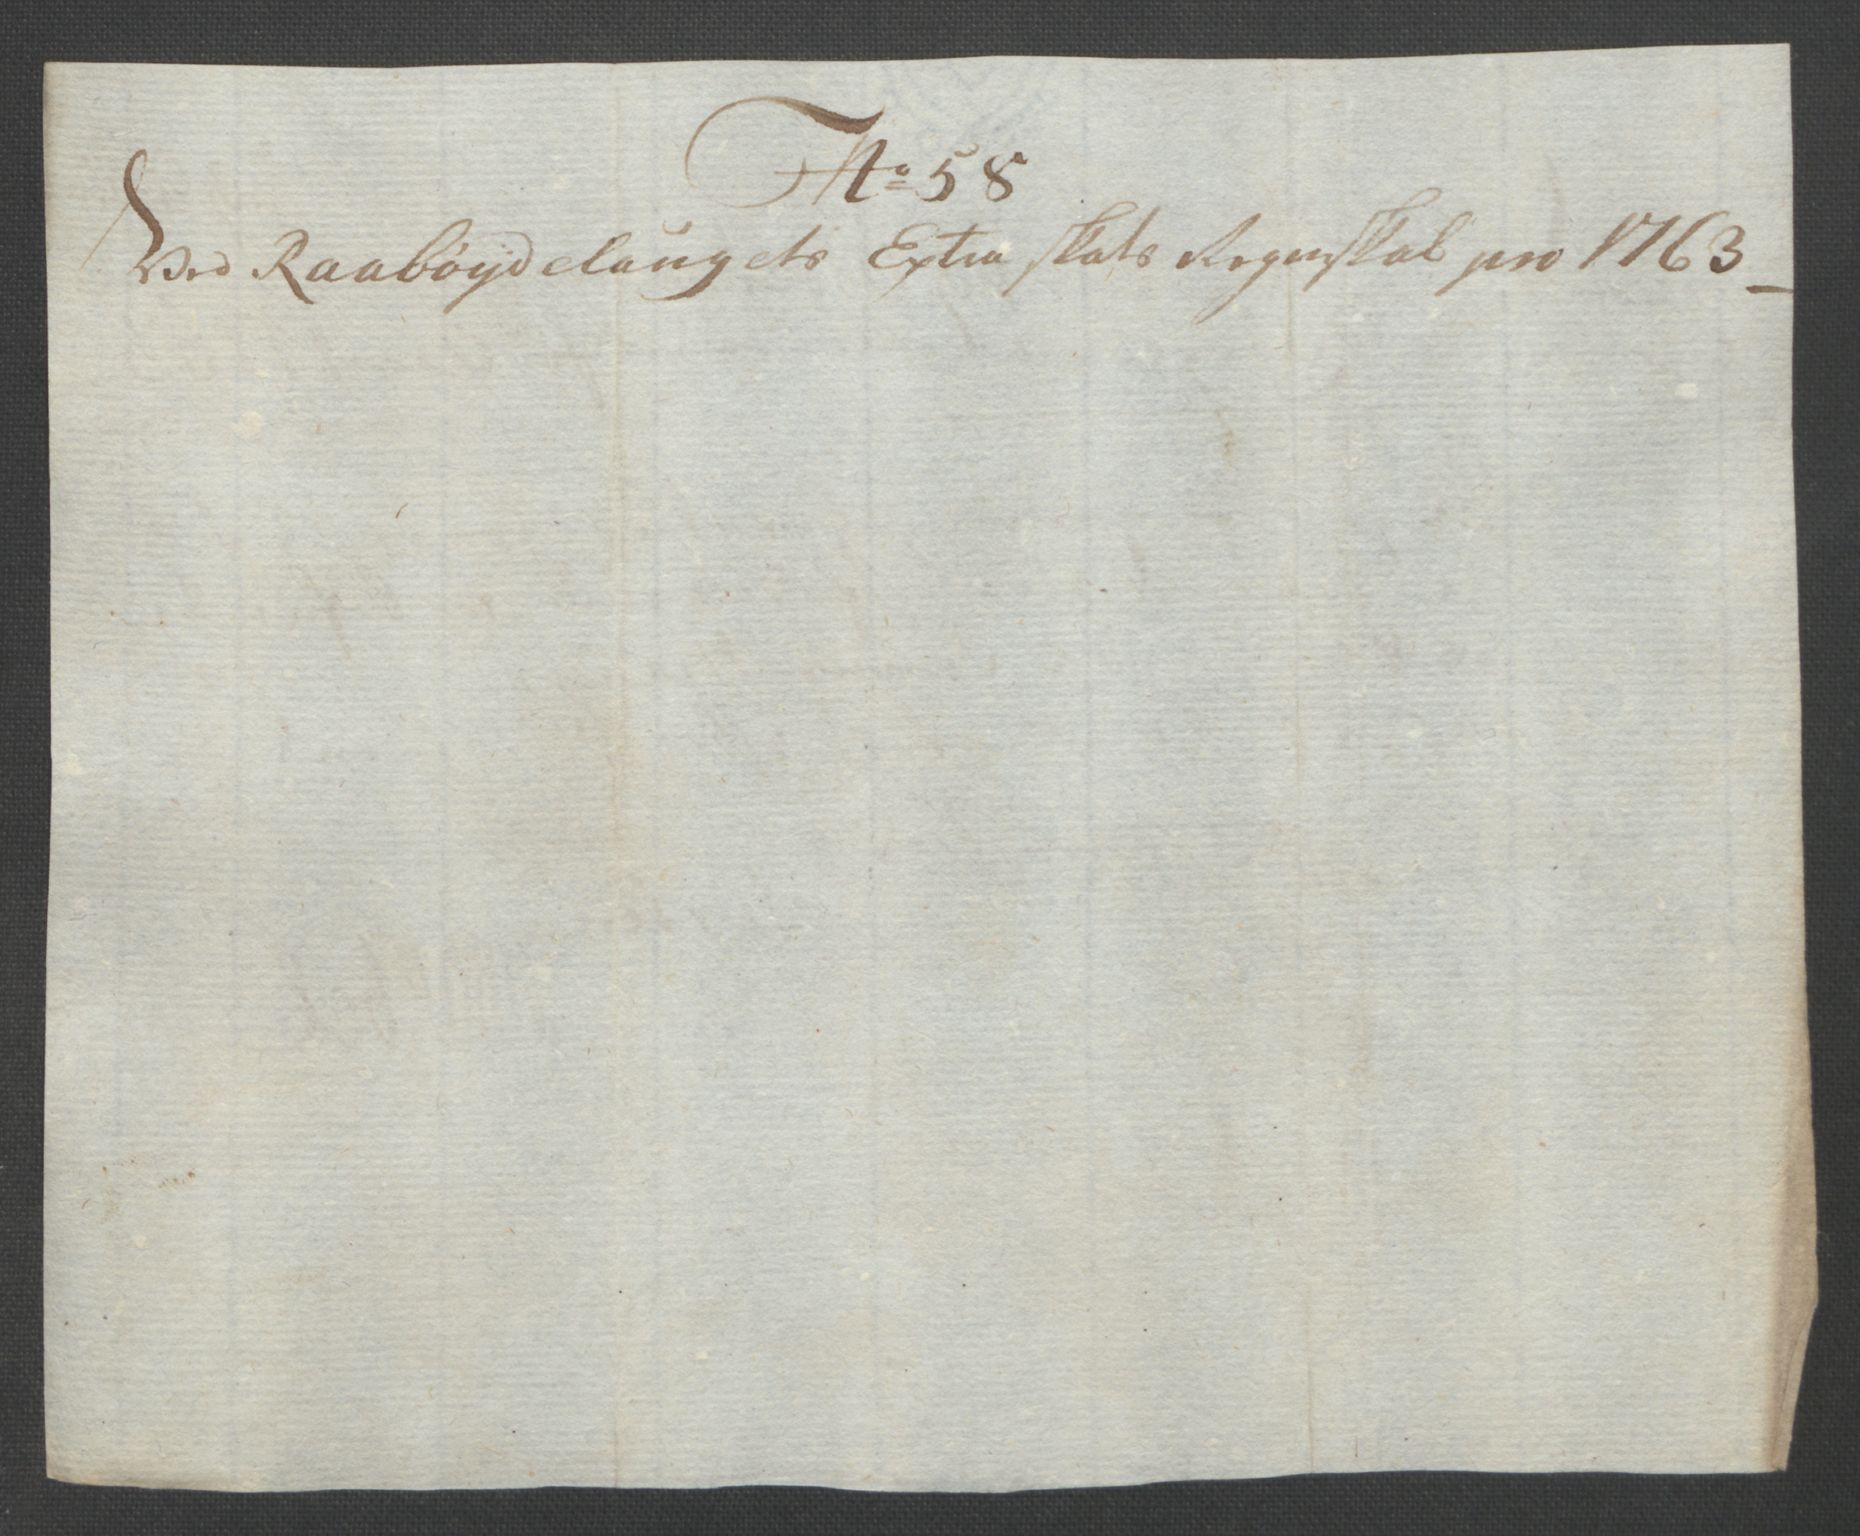 No 58
Ved Raabøydelaugets Extra skats Regnskab pro 1763